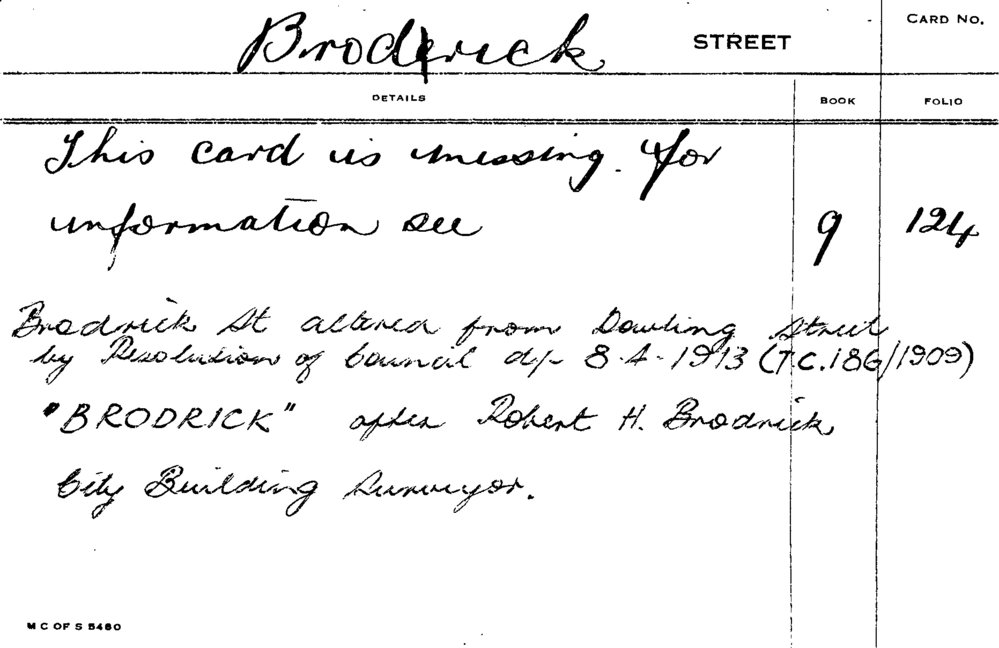 Brodrick STREET CARD NO.
DETAILS BOOK FOLIO
This card is missing. For
information see 9 124
Brodrick St altered from Dowling Street
by Resolution of Council d/- 8.4.1913 (T.C.186/1909)
"BRODRICK" after Robert H. Brodrick
City Building Surveyor.
M C OF S 5460